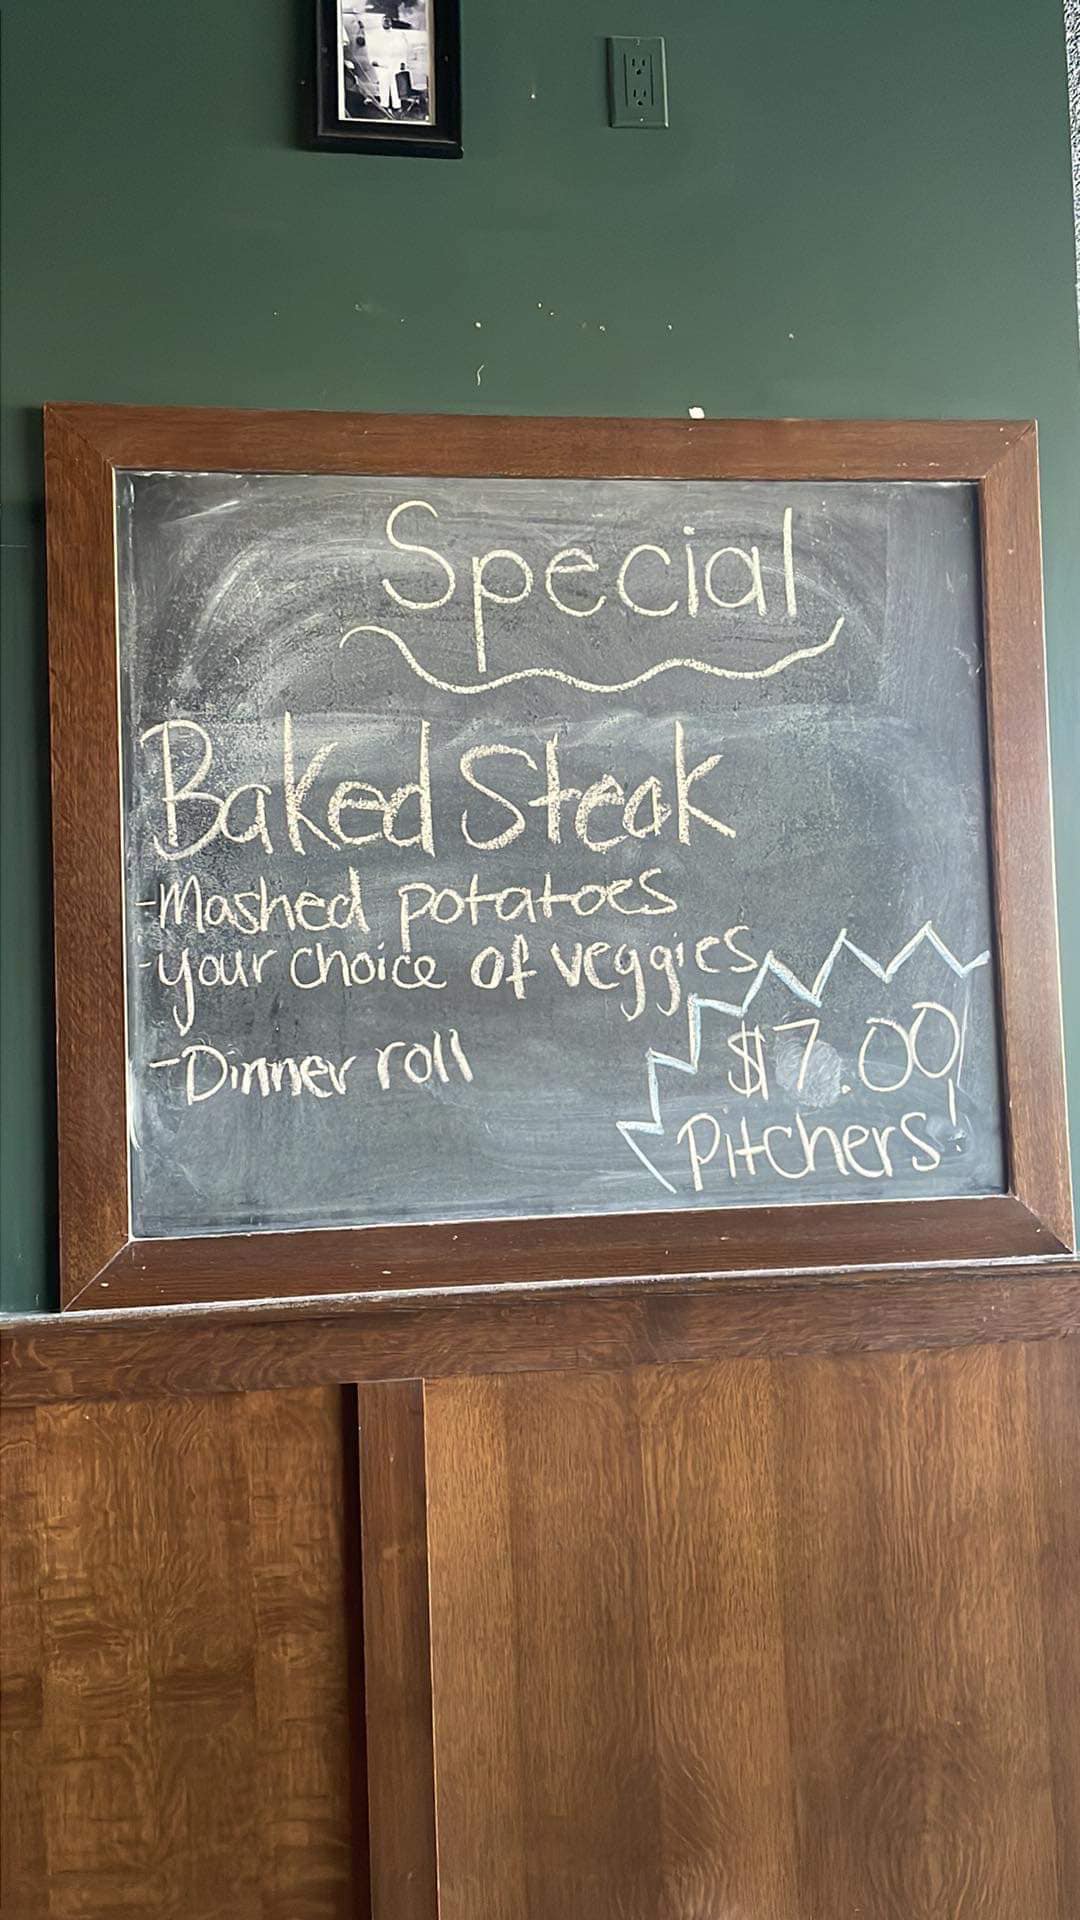 Special
Baked Steak
-Mashed potatoes
-your choice of veggies
-Dinner roll
$7.00!
Pitchers!